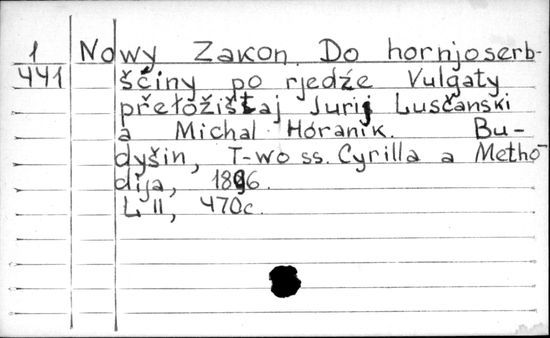 1 Nowy Zakon. Do hornjoserb-
441 šćiny po rjedźe Vulgaty
přełožištaj Jurij Lusčanski
a Michal Hóranik. Bu-
dyšin, T-wo ss. Cyrilla a Metho-
dija, 1896.
L II, 470c.